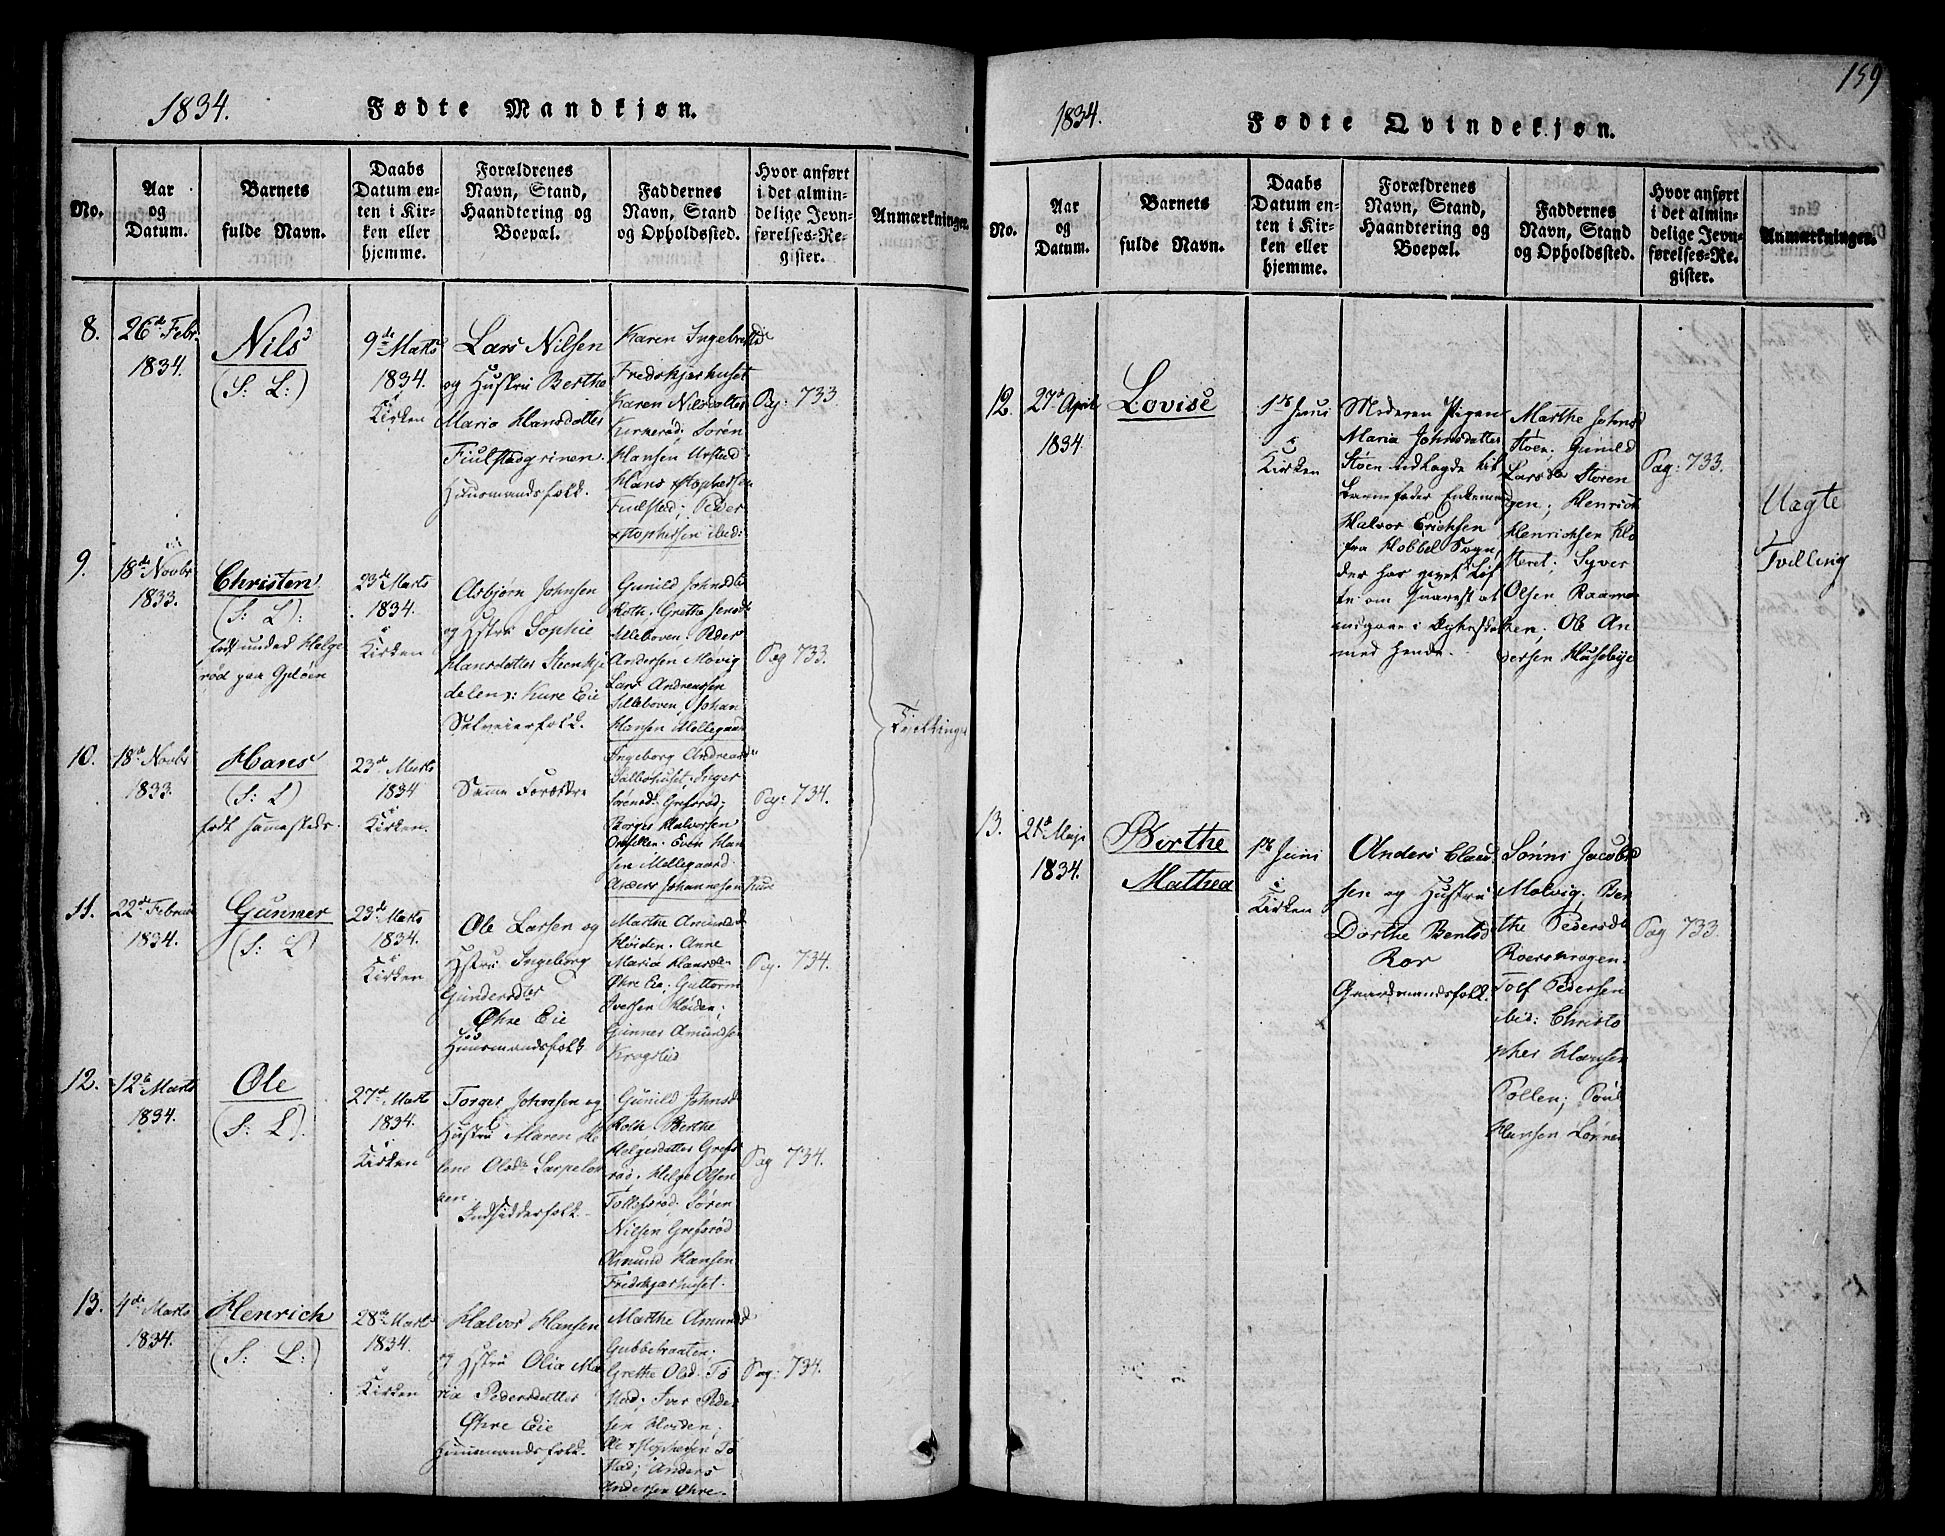 1834.
Fødte Mandkjøn.
No.
Aar
og
Datum.
Barnets
fulde Navn.
Daabs
Datum en-
ten i Kir-
ken eller
hjemme.
Forældrenes
Navn, Stand,
Haandtering og
Boepæl.
Faddernes
Navn, Stand
og Opholdssted.
Hvor anført
i det almin-
delige Jevn-
førelses-Re-
gister.
Anmærkninger.
8.
26de Febr.
1834.
Nils
(S: L:)
9de Marts
1834.
i
Kirken
Lars Nilsen
og Hustru Berthe
Maria Hansdatter
Fiulstadgrinen.
Huusmandsfolk.
Karen Ingebretsd
Fredskjærhuset
Karen Nilsdatter
Kirkerød; Søren
Hansen Urstad
Hans Xstophersen
Fiulstad; Peder
Xstophersen ibid:
Pag: 733
9.
18de Novbr
1833.
Christen
(S: L):
født under Helge
rød paa Gpløen
23de Marts
1834.
i
Kirken
Asbjørn Johnsen
og Hstru Sophie
Hansdatter Steenkje
delen: Kure Eie
Selveierfolk.
Gunild Johnsdr
Roth. Grethe Jensdr
Silleboven. Peder
Andersen Møvig
Lars Andreassen
Silleboven, Johan
Hansen Møllegaard
Pag 733.
Tvillinger
10.
18de Novbr
1833.
Hans
(S: L)
født samesteds.
23de Marts
1834
i
Kirken.
Samme Forældre
Ingeborg Andreasdr
Inger
Sørensd: Grefsrød;
Borger Halvorsen
Even Han
sen Møllegaard
Anders Johannesen Kure
Pag: 734.
11.
22de Februar
1834.
Gunner
(S: L)
23de Marts
1834.
i
Kirken
Ole Larsen og
Hstru Ingeborg
Gundersdter
Øhre Eie
Huusmandsfolk
Marthe Amundsd
Høiden. Anne
Maria Hansdtr
Øhre Eie; Guttorm
Iversen Høiden;
Gunner Amundsen
Krogslid
Pag. 734.
12.
12te Marts
1834.
Ole
(S: L).
27de Marts
1834.
i
Kirken
Torger Johnsen og
Hustru Maren He
lene Olsdr Sarpebr
ken
Indsidderfolk.
Gunild Johnsd
Roth Berthe
Helgesdatter Grefs
rød. Helge Olsen
Tollefsrød. Søren
Nilsen Grefsrød
Amund Hansen
Fredskjærhuset.
Pag 734.
13.
4de Marts
1834.
Henrich
(S: L:)
28de Marts
1834.
i
Kirken
Halvor Hansen
og Hstru Olia Ma
ria Pedersdatter
Øhre Eie
Huusmandsfolk.
Marthe Amundsd
Gubbebraaten;
Grethe Olsd. Tø
stad; Iver Peder
sen Høiden;
Ole Xstophersen Tø
stad; Anders
Andersen Øhre.
Pag: 734.
1834.
Fødte Qvindekjøn.
159
No.
Aar
og
Datum.
Barnets
fulde Navn.
Daabs
Datum en-
ten i Kir-
ken eller
hjemme.
Forældrenes
Navn, Stand,
Haandtering og
Boepæl.
Faddernes
Navn, Stand
og Opholdssted.
Hvor anført
i det almin-
delige Jevn-
førelses-Re-
gister.
Anmærkninger.
12.
27de April
1834.
Lovise
1ste Juni
i
Kirken
Moderen Pigen
Maria Johnsdatter
Støen udlagde til
Barnefader Enkemand
Halvor Erichsen
fra Hobbel Sogn,
der har givet Løf
te om snarest at
indgaae i Egteskab
med hende.
Marthe Johnsd
Støen; Gunild
Larsdtr Støren
gen; Henrich
Henrichsen Klo
steret; Syver
Olsen Raamo
en; Ole An
dersen Huseby
Pag: 733.
Uægte
Tvilling
13.
21de Maji
1834.
Berthe
Mathea
1ste Juni
i
Kirken
Anders Clau
sen og Hustru
Dorthe Bentsd
Rør
Gaardmandsfolk.
Sønni Jacobsd
Molvig; Ber
the Pedersdtr
Roersvogen.
Tolf Pedersen
ibid: Christo
pher Hansen
Pollen; Poul
Hansen Lønne
Pag 733.